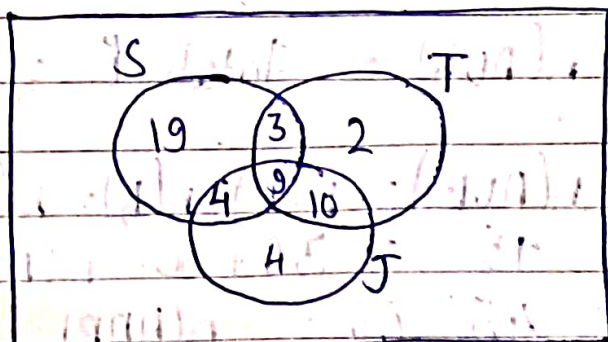 S T
19 3 2
4 9 10
4 J